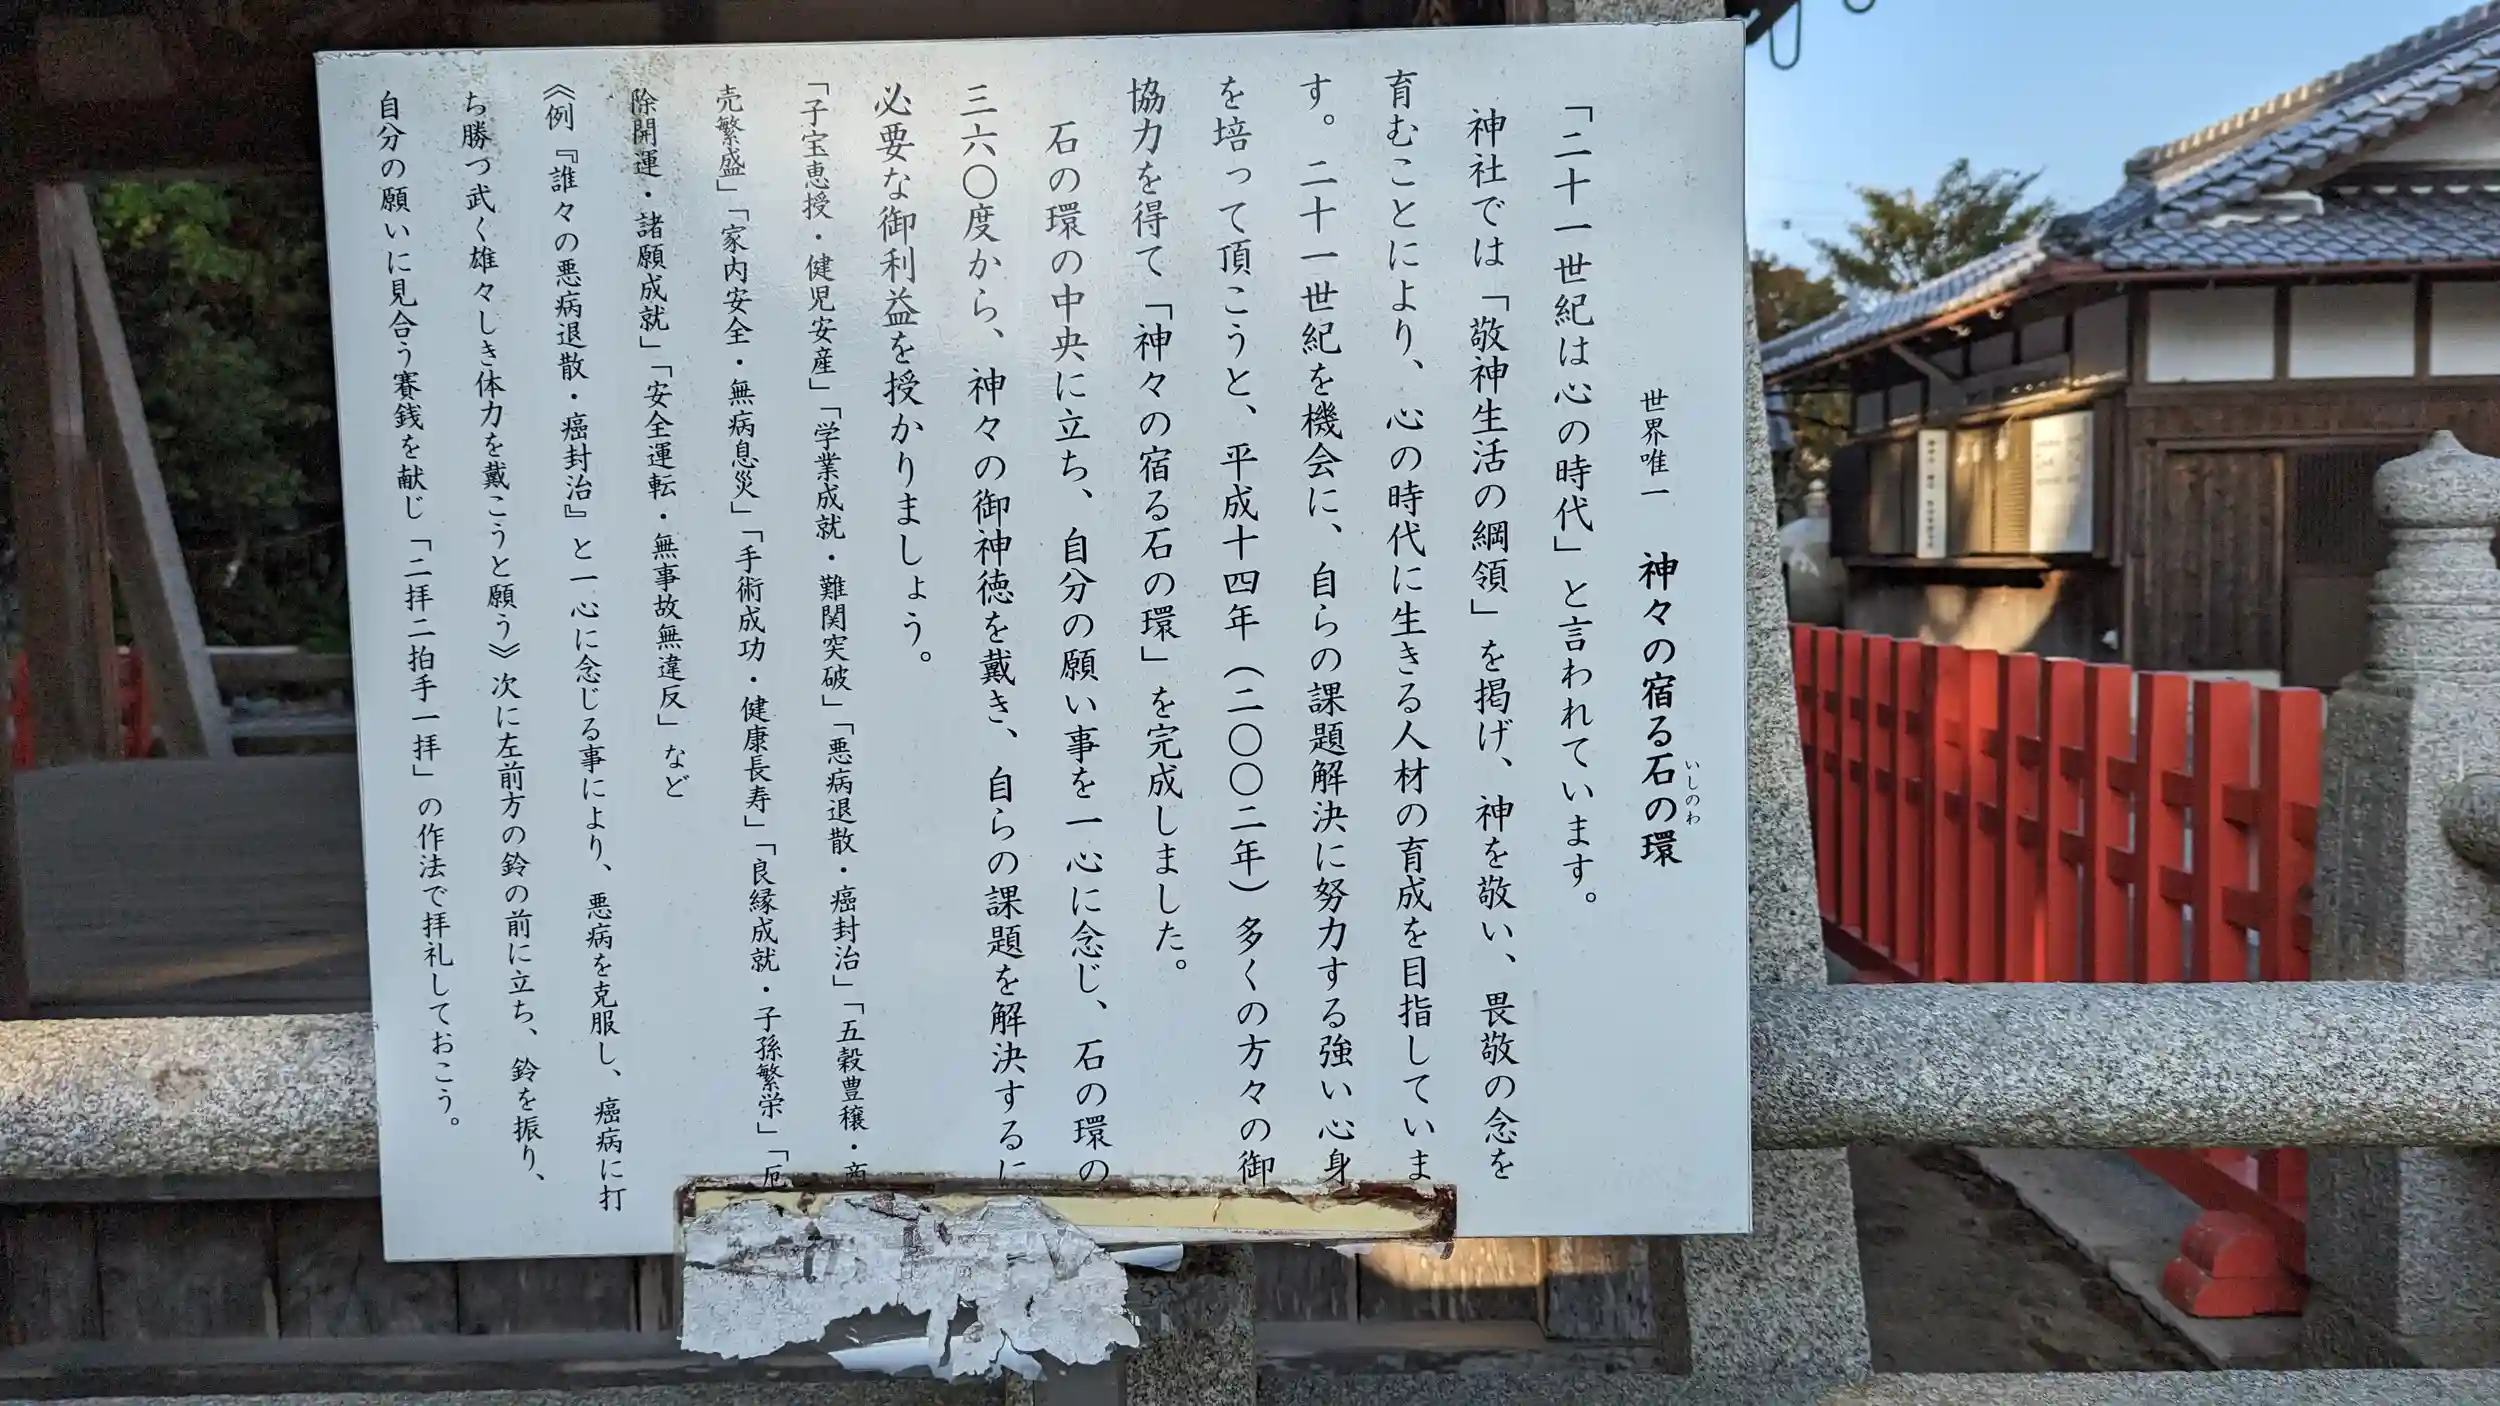 世界唯一　神々の宿る石の環
いしのわ
「二十一世紀は心の時代」と言われています。
神社では「敬神生活の綱領」を掲げ、神を敬い、畏敬の念を
育むことにより、心の時代に生きる人材の育成を目指していま
す。二十一世紀を機会に、自らの課題解決に努力する強い心身
を培って頂こうと、平成十四年（二〇〇二年）多くの方々の御
協力を得て「神々の宿る石の環」を完成しました。
石の環の中央に立ち、自分の願い事を一心に念じ、石の環の
三六〇度から、神々の御神徳を戴き、自らの課題を解決するに
必要な御利益を授かりましょう。
「子宝恵授・健児安産」「学業成就・難関突破」「悪病退散・癌封治」「五穀豊穣・商
売繁盛」「家内安全・無病息災」「手術成功・健康長寿」「良縁成就・子孫繁栄」「厄
除開運・諸願成就」「安全運転・無事故無違反」など
《例『誰々の悪病退散・癌封治』と一心に念じる事により、悪病を克服し、癌病に打
ち勝つ武く雄々しき体力を戴こうと願う》次に左前方の鈴の前に立ち、鈴を振り、
自分の願いに見合う賽銭を献じ「二拝二拍手一拝」の作法で拝礼しておこう。